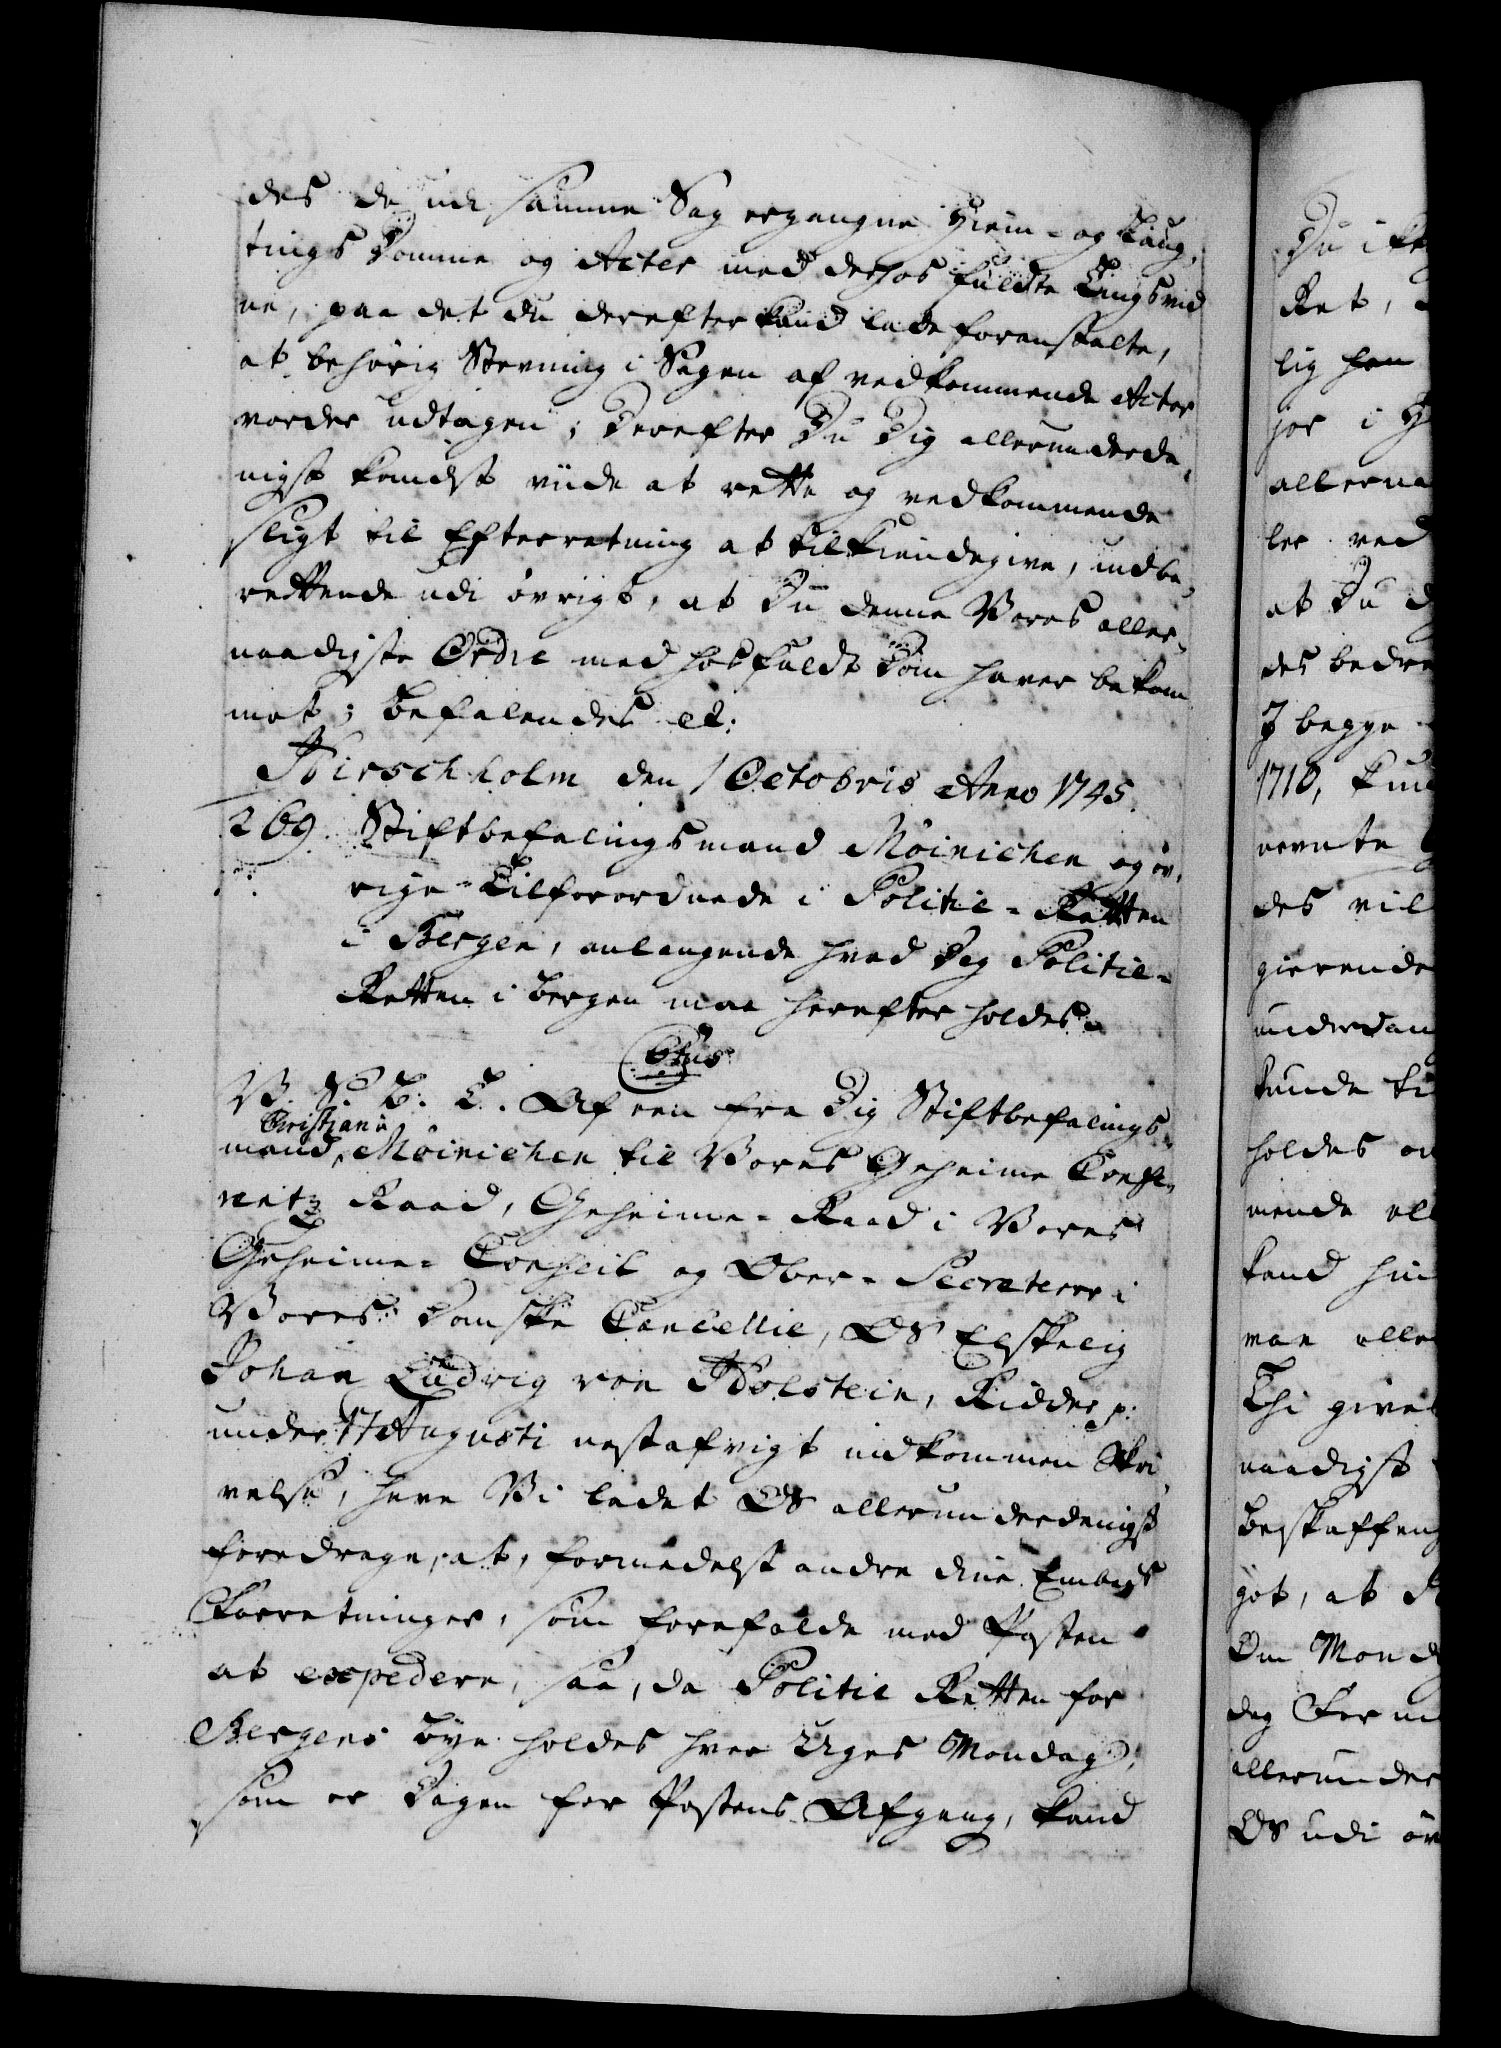 des de udi samme Sag ergangne Hiem- og Laug-
tings Domme og Acter med derhos fulde Tingsvid
ne, paa det du derefter kand lade foranstalte,
at behørig Stevning i Sagen af vedkommende Actor
vorder udtagen; Derefter Du Dig allerunderda-
nigst kandst viide at rette og vedkommende
sligt til Efterretning at tilkiendegive, indbe-
rettende udi øvrigt, at Du denne Vores aller-
naadigste Ordre med hosfuldt Dom haver bekom
met; Befalendes etc:
Hirschholm den 1 Octobris Anno 1745.
269. Stiftbefalingsmand Möinichen og øv-
rige Tilforordnede i Politie-Retten
i Bergen, anlangende hvad Dag Politie-
Retten i Bergen maa herefter holdes.
C6tus
V. G. T. Af een fra Dig Stiftbefalings-
Christian
mand, Möinichen til Vores Geheime Confe-
rentz Raad, Geheime-Raad i Vores
Geheime-Conseil og Ober-Secreterer i
Vores Danske Cancellie, Os Elskelig
Johan Ludvig von Holstein, Ridder p:
under 17 Augusti nestafvigt indkommen Skri-
velse, have Vi ladet Os allerunderdanigst
foredrage, at, formedelst andre dine Embeds
Forretninger, som forefalde med Posten
at expedere, saa, da Politie Retten for
Bergens Bye holdes hver Uges Mandag,
som er Dagen for Postens Afgang, kand
Du ikke
Ret,
lig han
jor i
allerna
ler ved
at Du
des bedre
I begge
1710, kun
nevnte
des vil
gierende
underdan
kunde ti
holdes
mende
kand
maa alle
Thi give
naadigst
Beskaffen
got, at
Om Mand
dag For
allerunder
Os udi øv